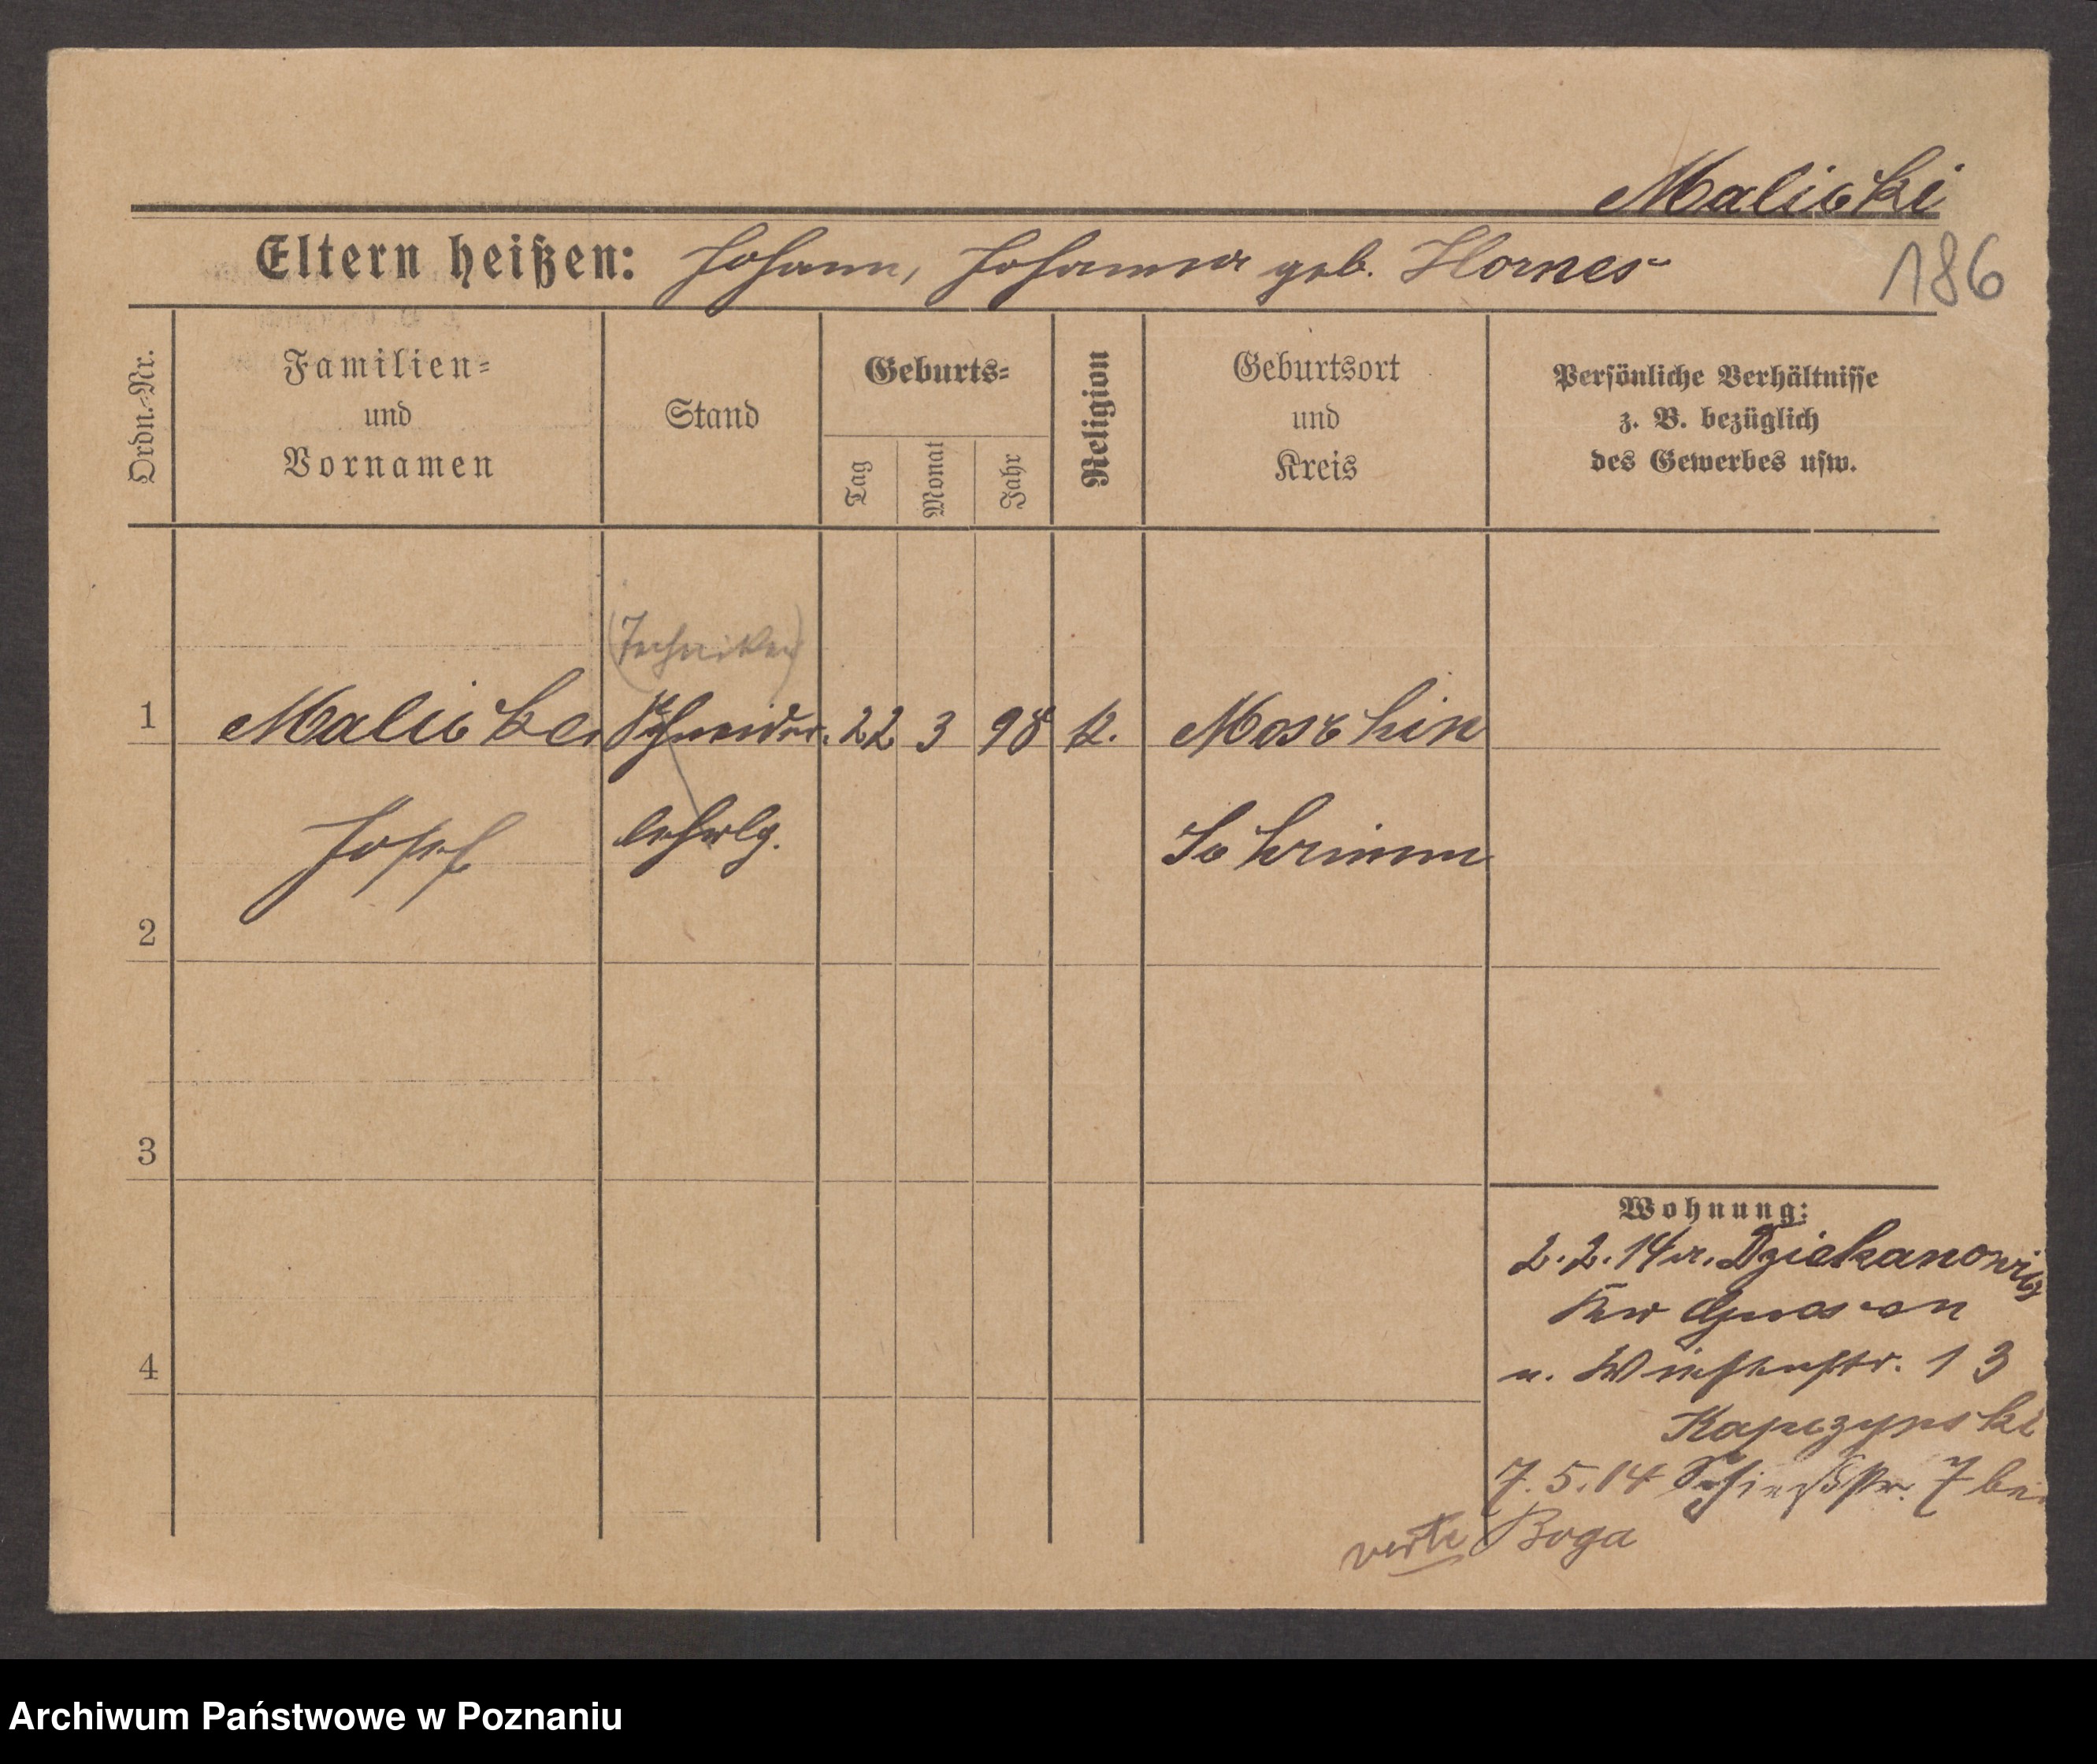 Malicki
Eltern heißen: Johann, Johanna geb. Hornes
186
Ordn.-Nr.
Familien-
und
Vornamen
Stand
Geburts-
Tag
Monat
Jahr
Religion
Geburtsort
und
Kreis
Persönliche Verhältnisse
z. B. bezüglich
des Gewerbes usw.
(Techniker)
1 Malicki Schneider 22 3 98 k. Moschin
Josef lehrlg. Schrimm
2
3
4
Wohnung:
2.2.14 v. Dziekanowitz
Krs Gnesen
n. Wiesenstr. 13
Kapczynski
7.5.14 Schießstr. 7 bei
verte Boga
Archiwum Państwowe w Poznaniu